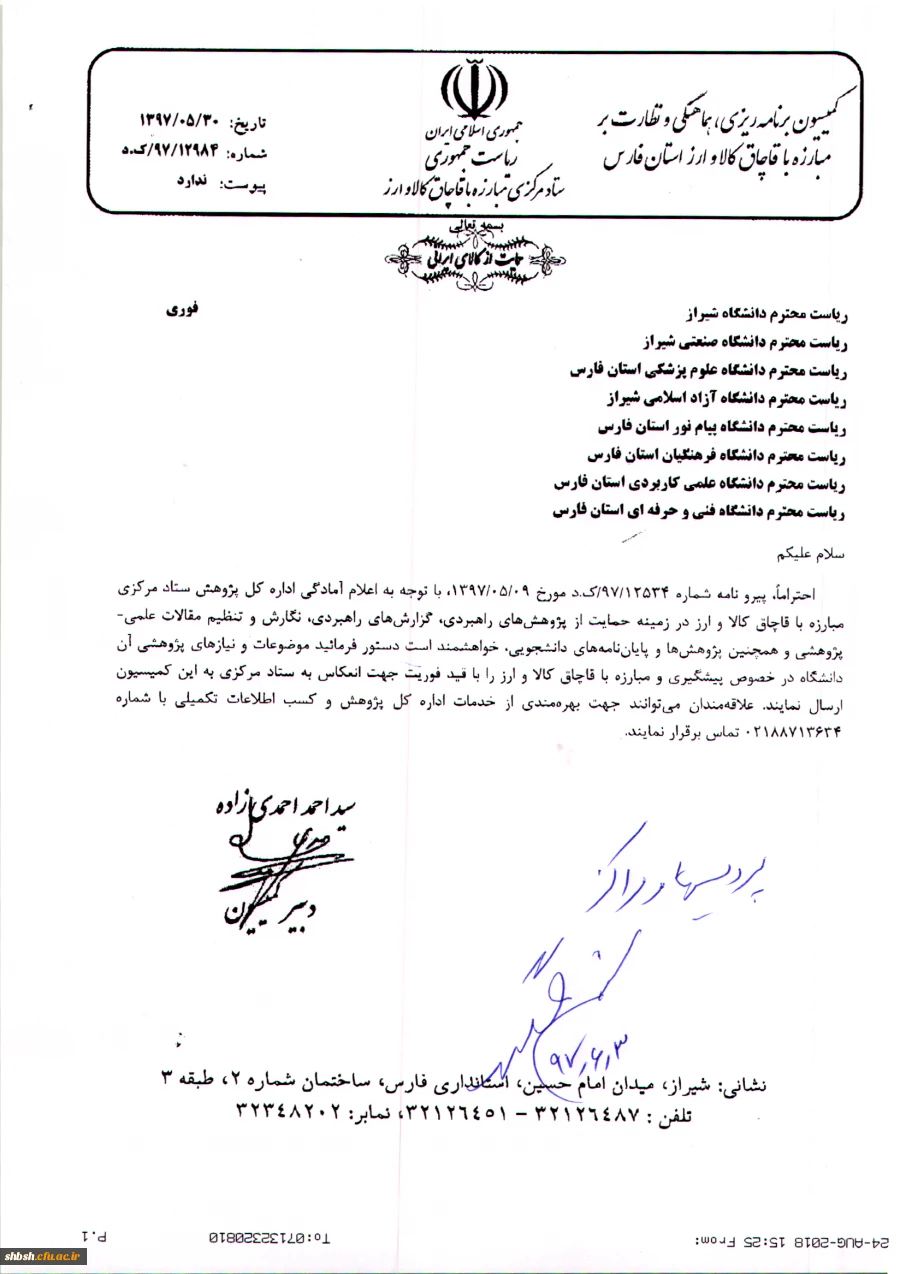 کمیسیون برنامه ریزی، هماهنگی و نظارت بر
مبارزه با قاچاق کالا و ارز استان فارس
جمهوری اسلامی ایران
ریاست جمهوری
ستاد مرکزی مبارزه با قاچاق کالا و ارز
تاریخ: ۱۳۹۷/۰۵/۳۰
شماره: ۹۷/۱۲۹۸۴/ک.د
پیوست: ندارد
بسمه تعالی
حمایت از کالای ایرانی
فوری
ریاست محترم دانشگاه شیراز
ریاست محترم دانشگاه صنعتی شیراز
ریاست محترم دانشگاه علوم پزشکی استان فارس
ریاست محترم دانشگاه آزاد اسلامی شیراز
ریاست محترم دانشگاه پیام نور استان فارس
ریاست محترم دانشگاه فرهنگیان استان فارس
ریاست محترم دانشگاه علمی کاربردی استان فارس
ریاست محترم دانشگاه فنی و حرفه ای استان فارس
سلام علیکم
احتراماً، پیرو نامه شماره ۹۷/۱۲۵۳۴/ک.د مورخ ۱۳۹۷/۰۵/۰۹، با توجه به اعلام آمادگی اداره کل پژوهش ستاد مرکزی
مبارزه با قاچاق کالا و ارز در زمینه حمایت از پژوهش‌های راهبردی، گزارش‌های راهبردی، نگارش و تنظیم مقالات علمی-
پژوهشی و همچنین پژوهش‌ها و پایان‌نامه‌های دانشجویی، خواهشمند است دستور فرمائید موضوعات و نیازهای پژوهشی آن
دانشگاه در خصوص پیشگیری و مبارزه با قاچاق کالا و ارز را با قید فوریت جهت انعکاس به ستاد مرکزی به این کمیسیون
ارسال نمایند. علاقه‌مندان می‌توانند جهت بهره‌مندی از خدمات اداره کل پژوهش و کسب اطلاعات تکمیلی با شماره
۰۲۱۸۸۷۱۳۶۳۴ تماس برقرار نمایند.
سید احمد احمدی زاده
دبیر کمیسیون
پردیسها و مراکز
۹۷٫۶٫۳
نشانی: شیراز، میدان امام حسین، استانداری فارس، ساختمان شماره ۲، طبقه ۳
تلفن : ۳۲۱۲۶٤۸۷ – ۳۲۱۲۶٤۵۱، نمابر: ۳۲۳٤۸۲۰۲
24-AUG-2018 15:25 From:
To:07132320810
P.1
shbsh.cfu.ac.ir